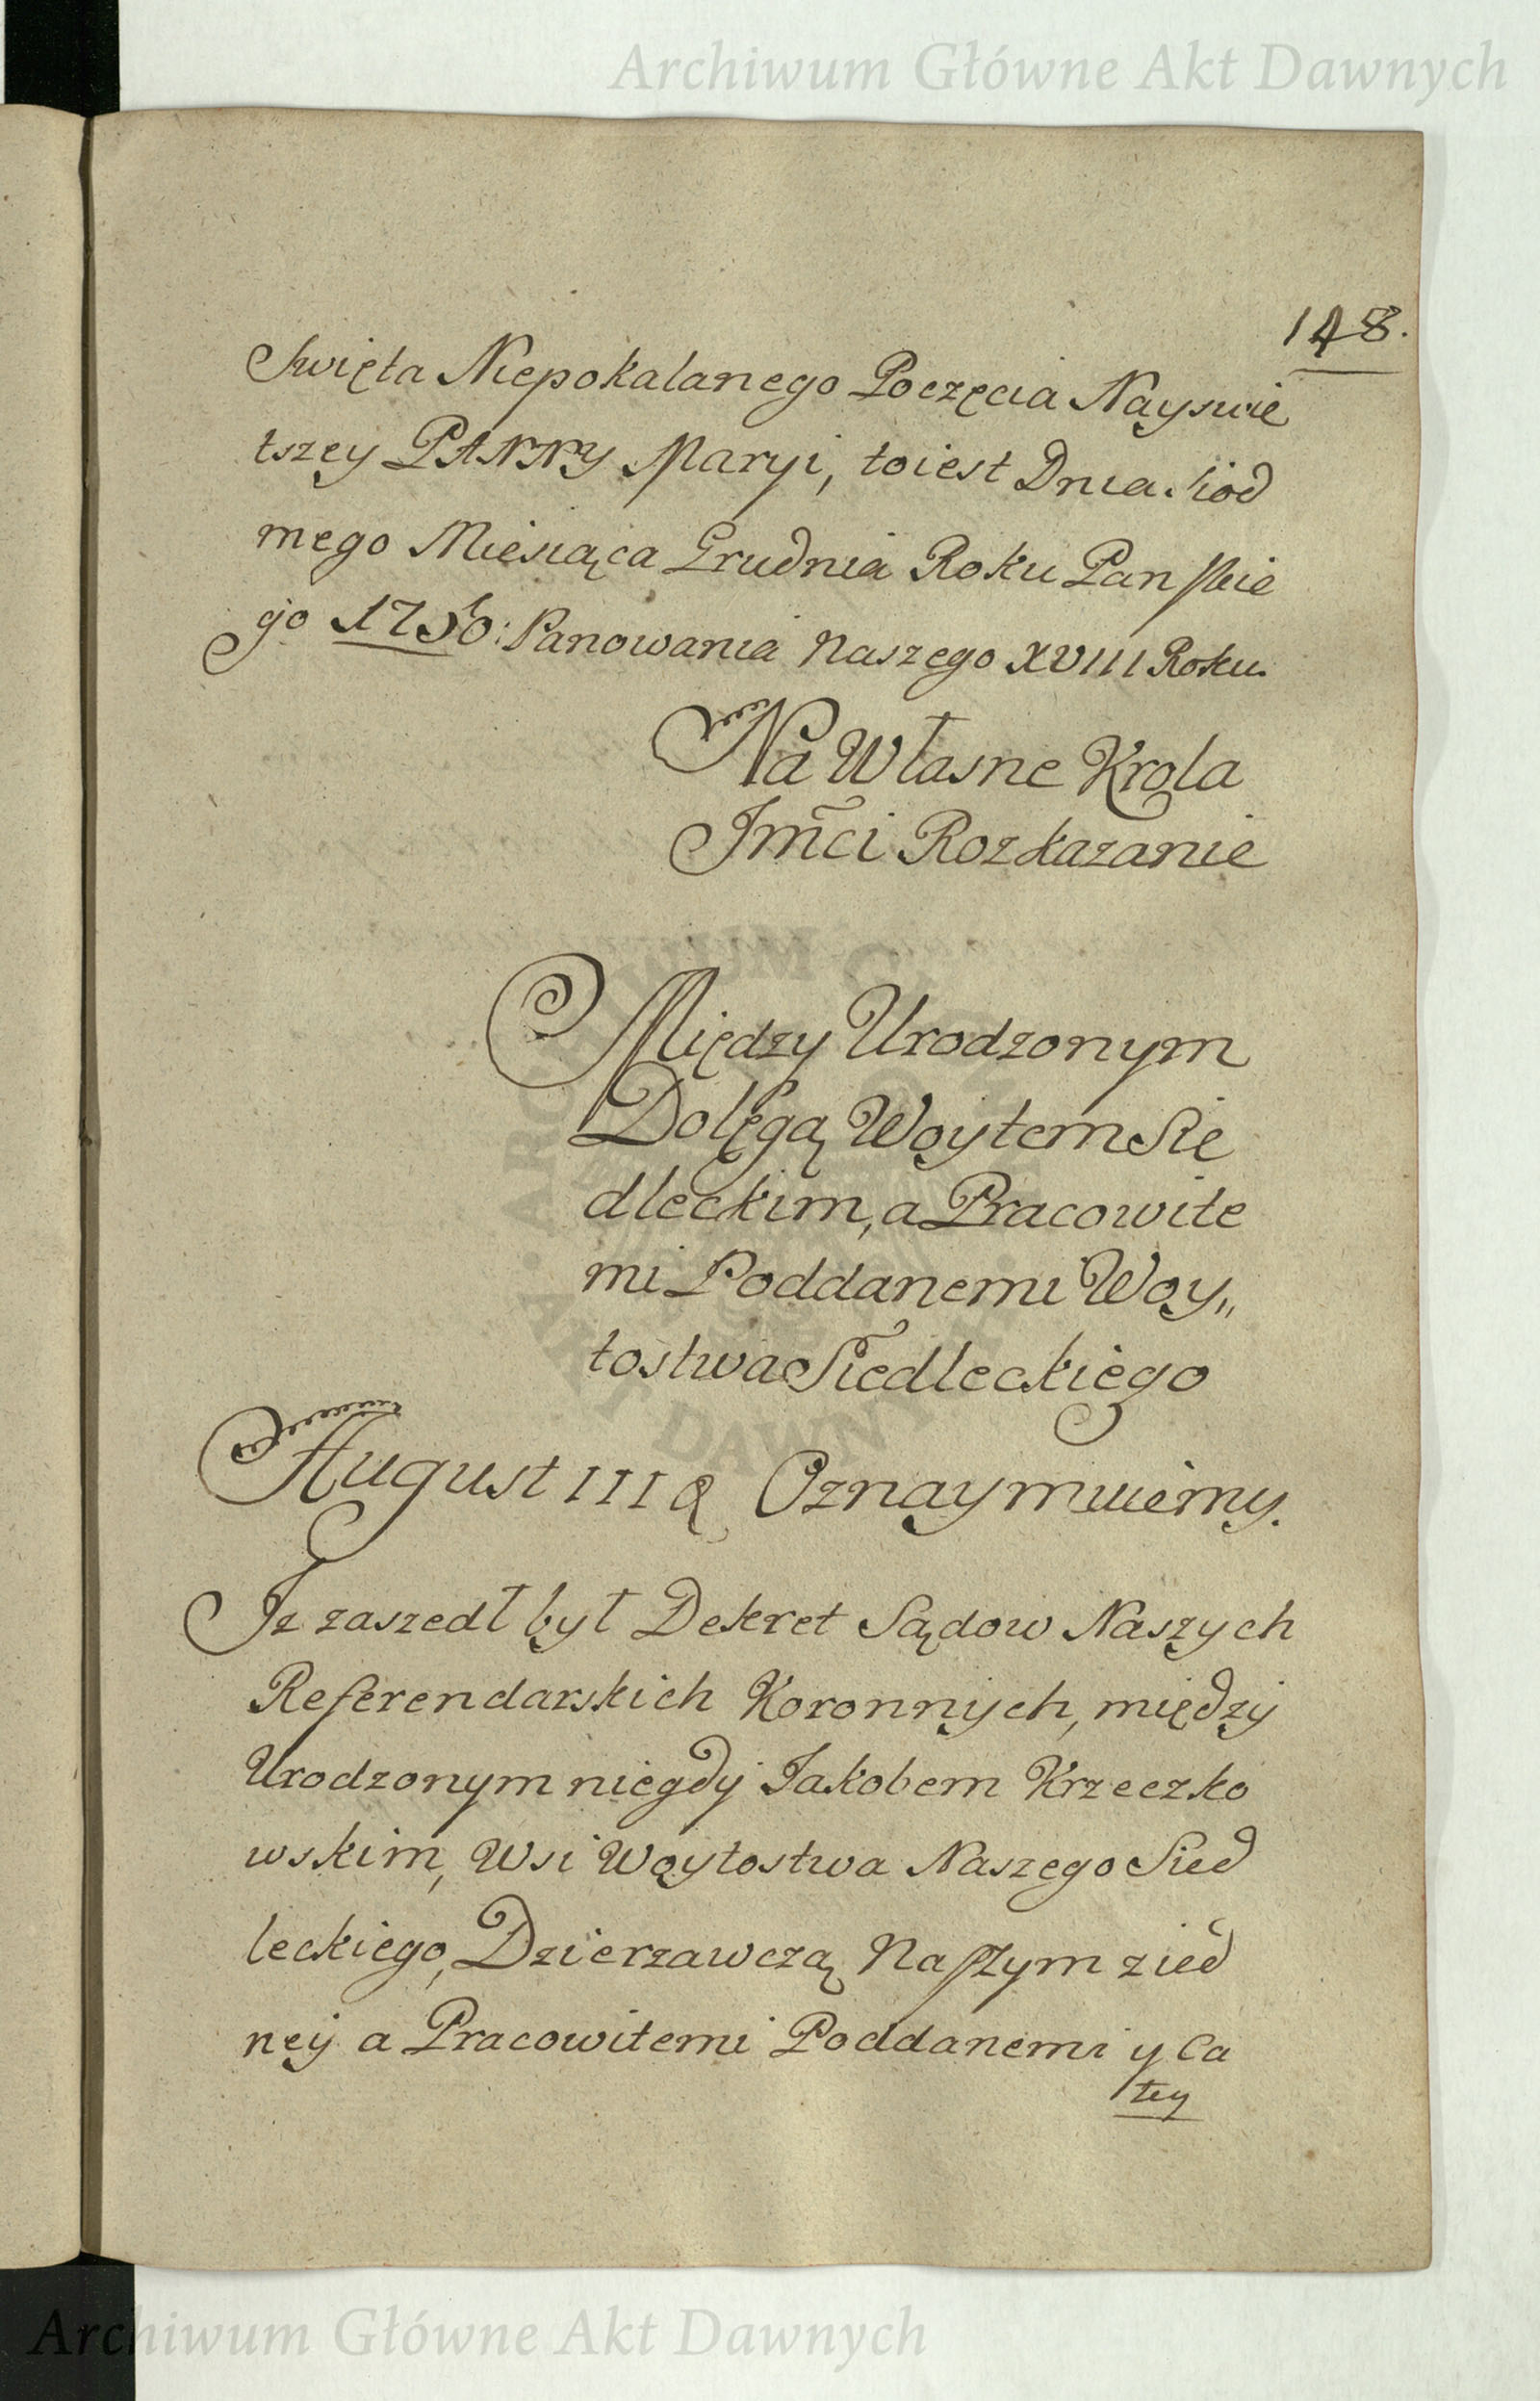 Archiwum Główne Akt Dawnych
148.
Swięta Niepokalanego Poczęcia Nayswię
tszey PANNY Maryi, toiest Dnia Siod
mego Miesiąca Grudnia Roku Panskie
go 1750: Panowania Naszego XVIII Roku.
Na Własne Krola
Jmći Rozkazanie
Między Urodzonym
Dolęgą Woytem Sie
dleckim, a Pracowite
mi Poddanemi Woy„
tostwa Siedleckiego
August III Oznaymuiemy.
Jz zaszedł był Dekret Sądow Naszych
Referendarskich Koronnych, między
Urodzonym niegdy Jakobem Krzeczko
wskim, Wsi Woytostwa Naszego Sied
leckiego, Dzierzawczą Naszym zied
ney a Pracowitemi Poddanemi y Ca
łey
Archiwum Główne Akt Dawnych